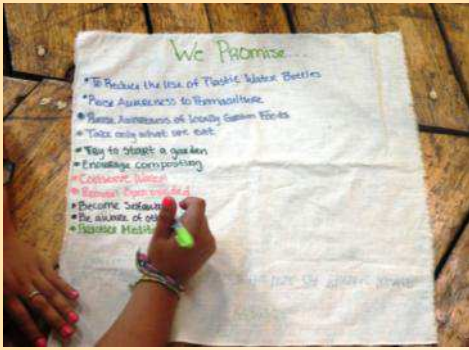 We Promise...
• To Reduce the Use of Plastic Water Bottles
• Raise Awareness to Permaculture
• Raise Awareness of Locally Grown Foods
• Take only what we eat
• Try to Start a garden
• Encourage composting
• Conserve Water
• Remain Open minded
• Become
• Be aware of
• Practice